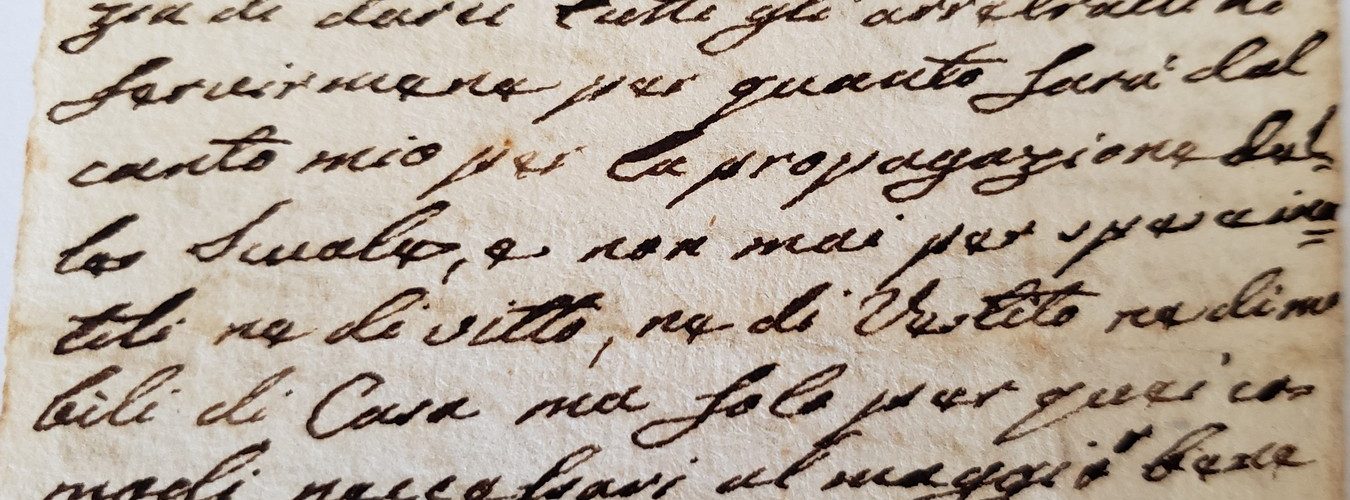 zia di darci tutti gli arretrati di
servirmene per quanto sarà dal
canto mio per la propagazione del=
le Scuole, e non mai per
titi ne di vitto, ne di Vestito ne di mo
bili di Casa ma solo per quei co
modi necessari al maggior bene